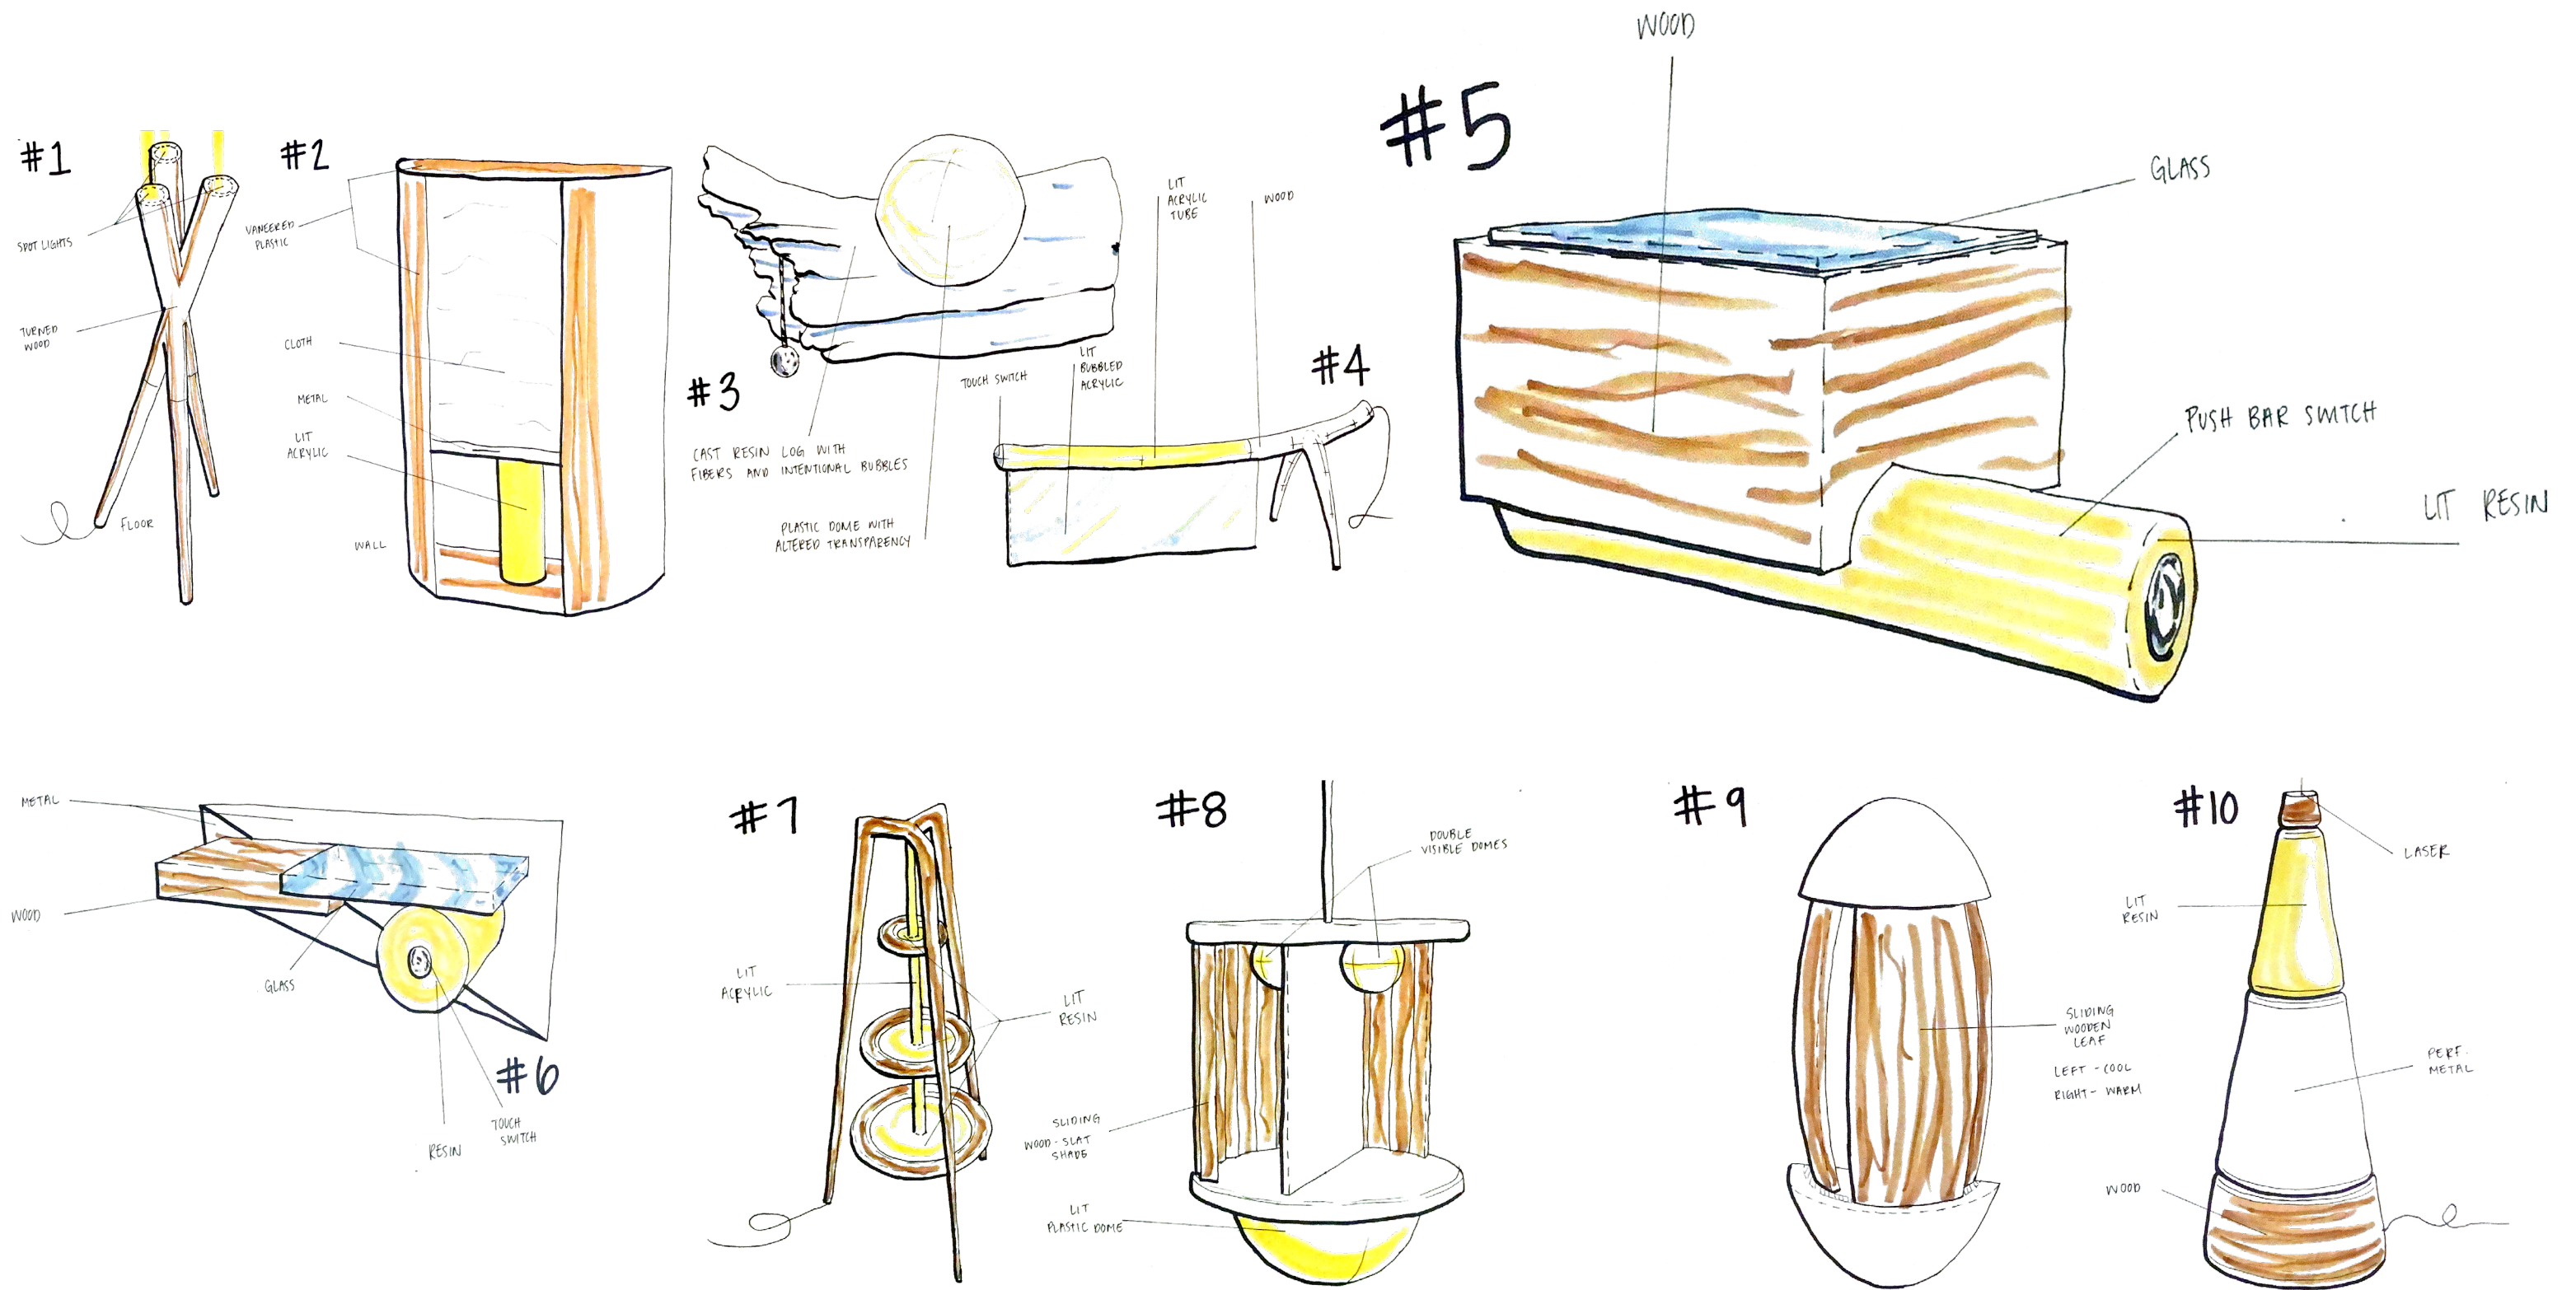 #1
SPOT LIGHTS
TURNED
WOOD
FLOOR
#2
VANEERED
PLASTIC
CLOTH
METAL
LIT
ACRYLIC
WALL
#3
CAST RESIN LOG WITH
FIBERS AND INTENTIONAL BUBBLES
PLASTIC DOME WITH
ALTERED TRANSPARENCY
#4
LIT
ACRYLIC
TUBE
WOOD
TOUCH SWITCH
LIT
BUBBLED
ACRYLIC
#5
WOOD
GLASS
PUSH BAR SWITCH
LIT RESIN
METAL
WOOD
GLASS
#6
RESIN
TOUCH
SWITCH
#7
LIT
ACRYLIC
LIT
RESIN
#8
DOUBLE
VISIBLE DOMES
SLIDING
WOOD-SLAT
SHADE
LIT
PLASTIC DOME
#9
SLIDING
WOODEN
LEAF
LEFT - COOL
RIGHT - WARM
#10
LASER
LIT
RESIN
PERF.
METAL
WOOD